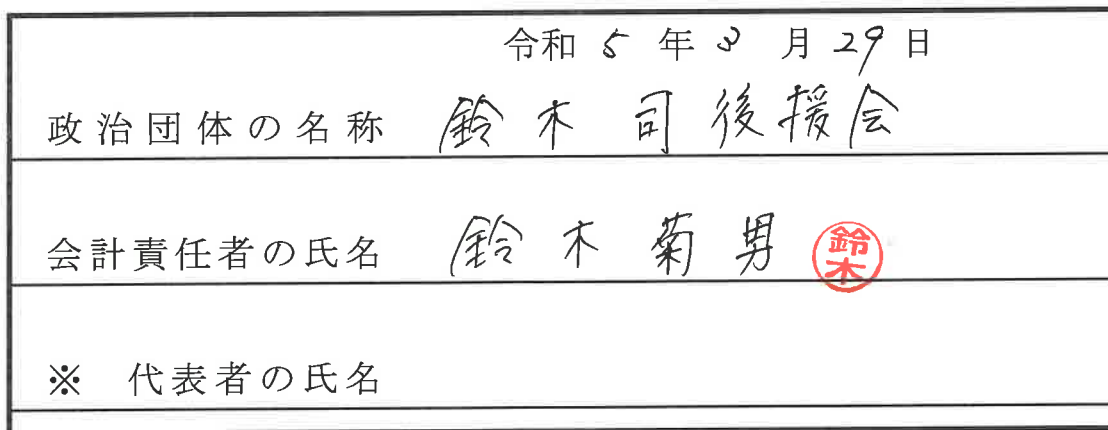 令和 5 年 3 月 29 日
政治団体の名称 鈴木 司後援会
会計責任者の氏名 鈴木菊男 鈴木
※ 代表者の氏名